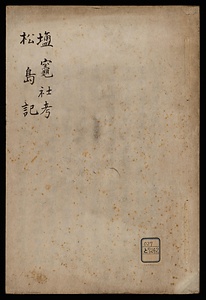 塩竈社考
松島記